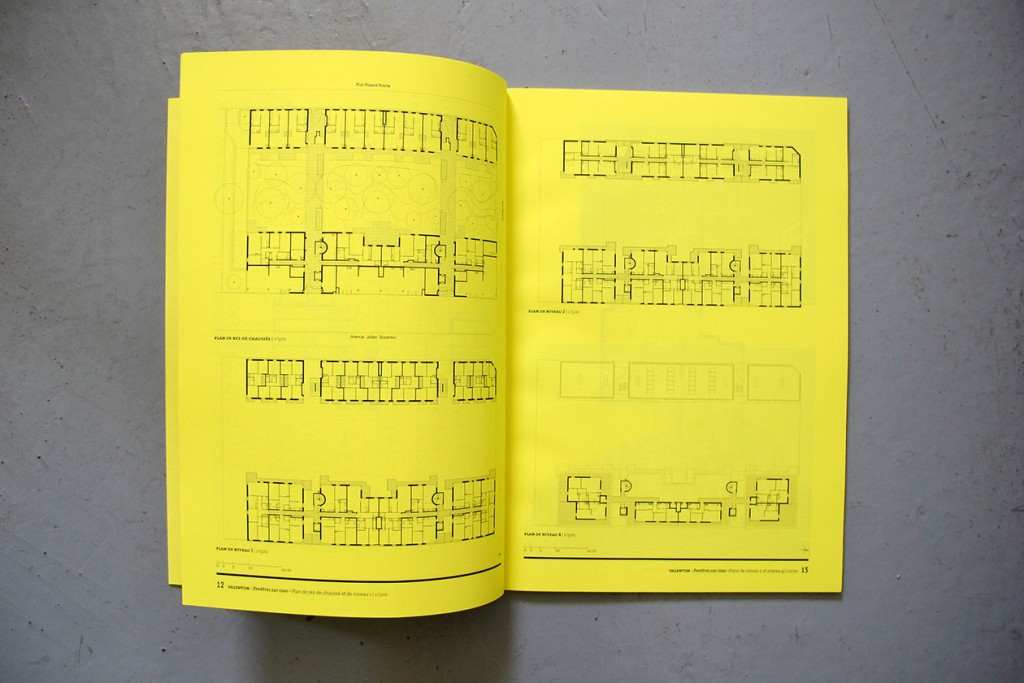 Rue Roland Roche
PLAN DE REZ DE CHAUSSÉE | 1/500
Avenue Julien Duranton
PLAN DE NIVEAU 1 | 1/500
12 VALENTON - Fenêtres sur cour - Plan de rez de chaussé et du niveau 1 | 1/500
PLAN DE NIVEAU 2 | 1/500
PLAN DE NIVEAU 4 | 1/500
VALENTON - Fenêtres sur cour - Plans de niveau 2 et niveau 4 | 1/500 13